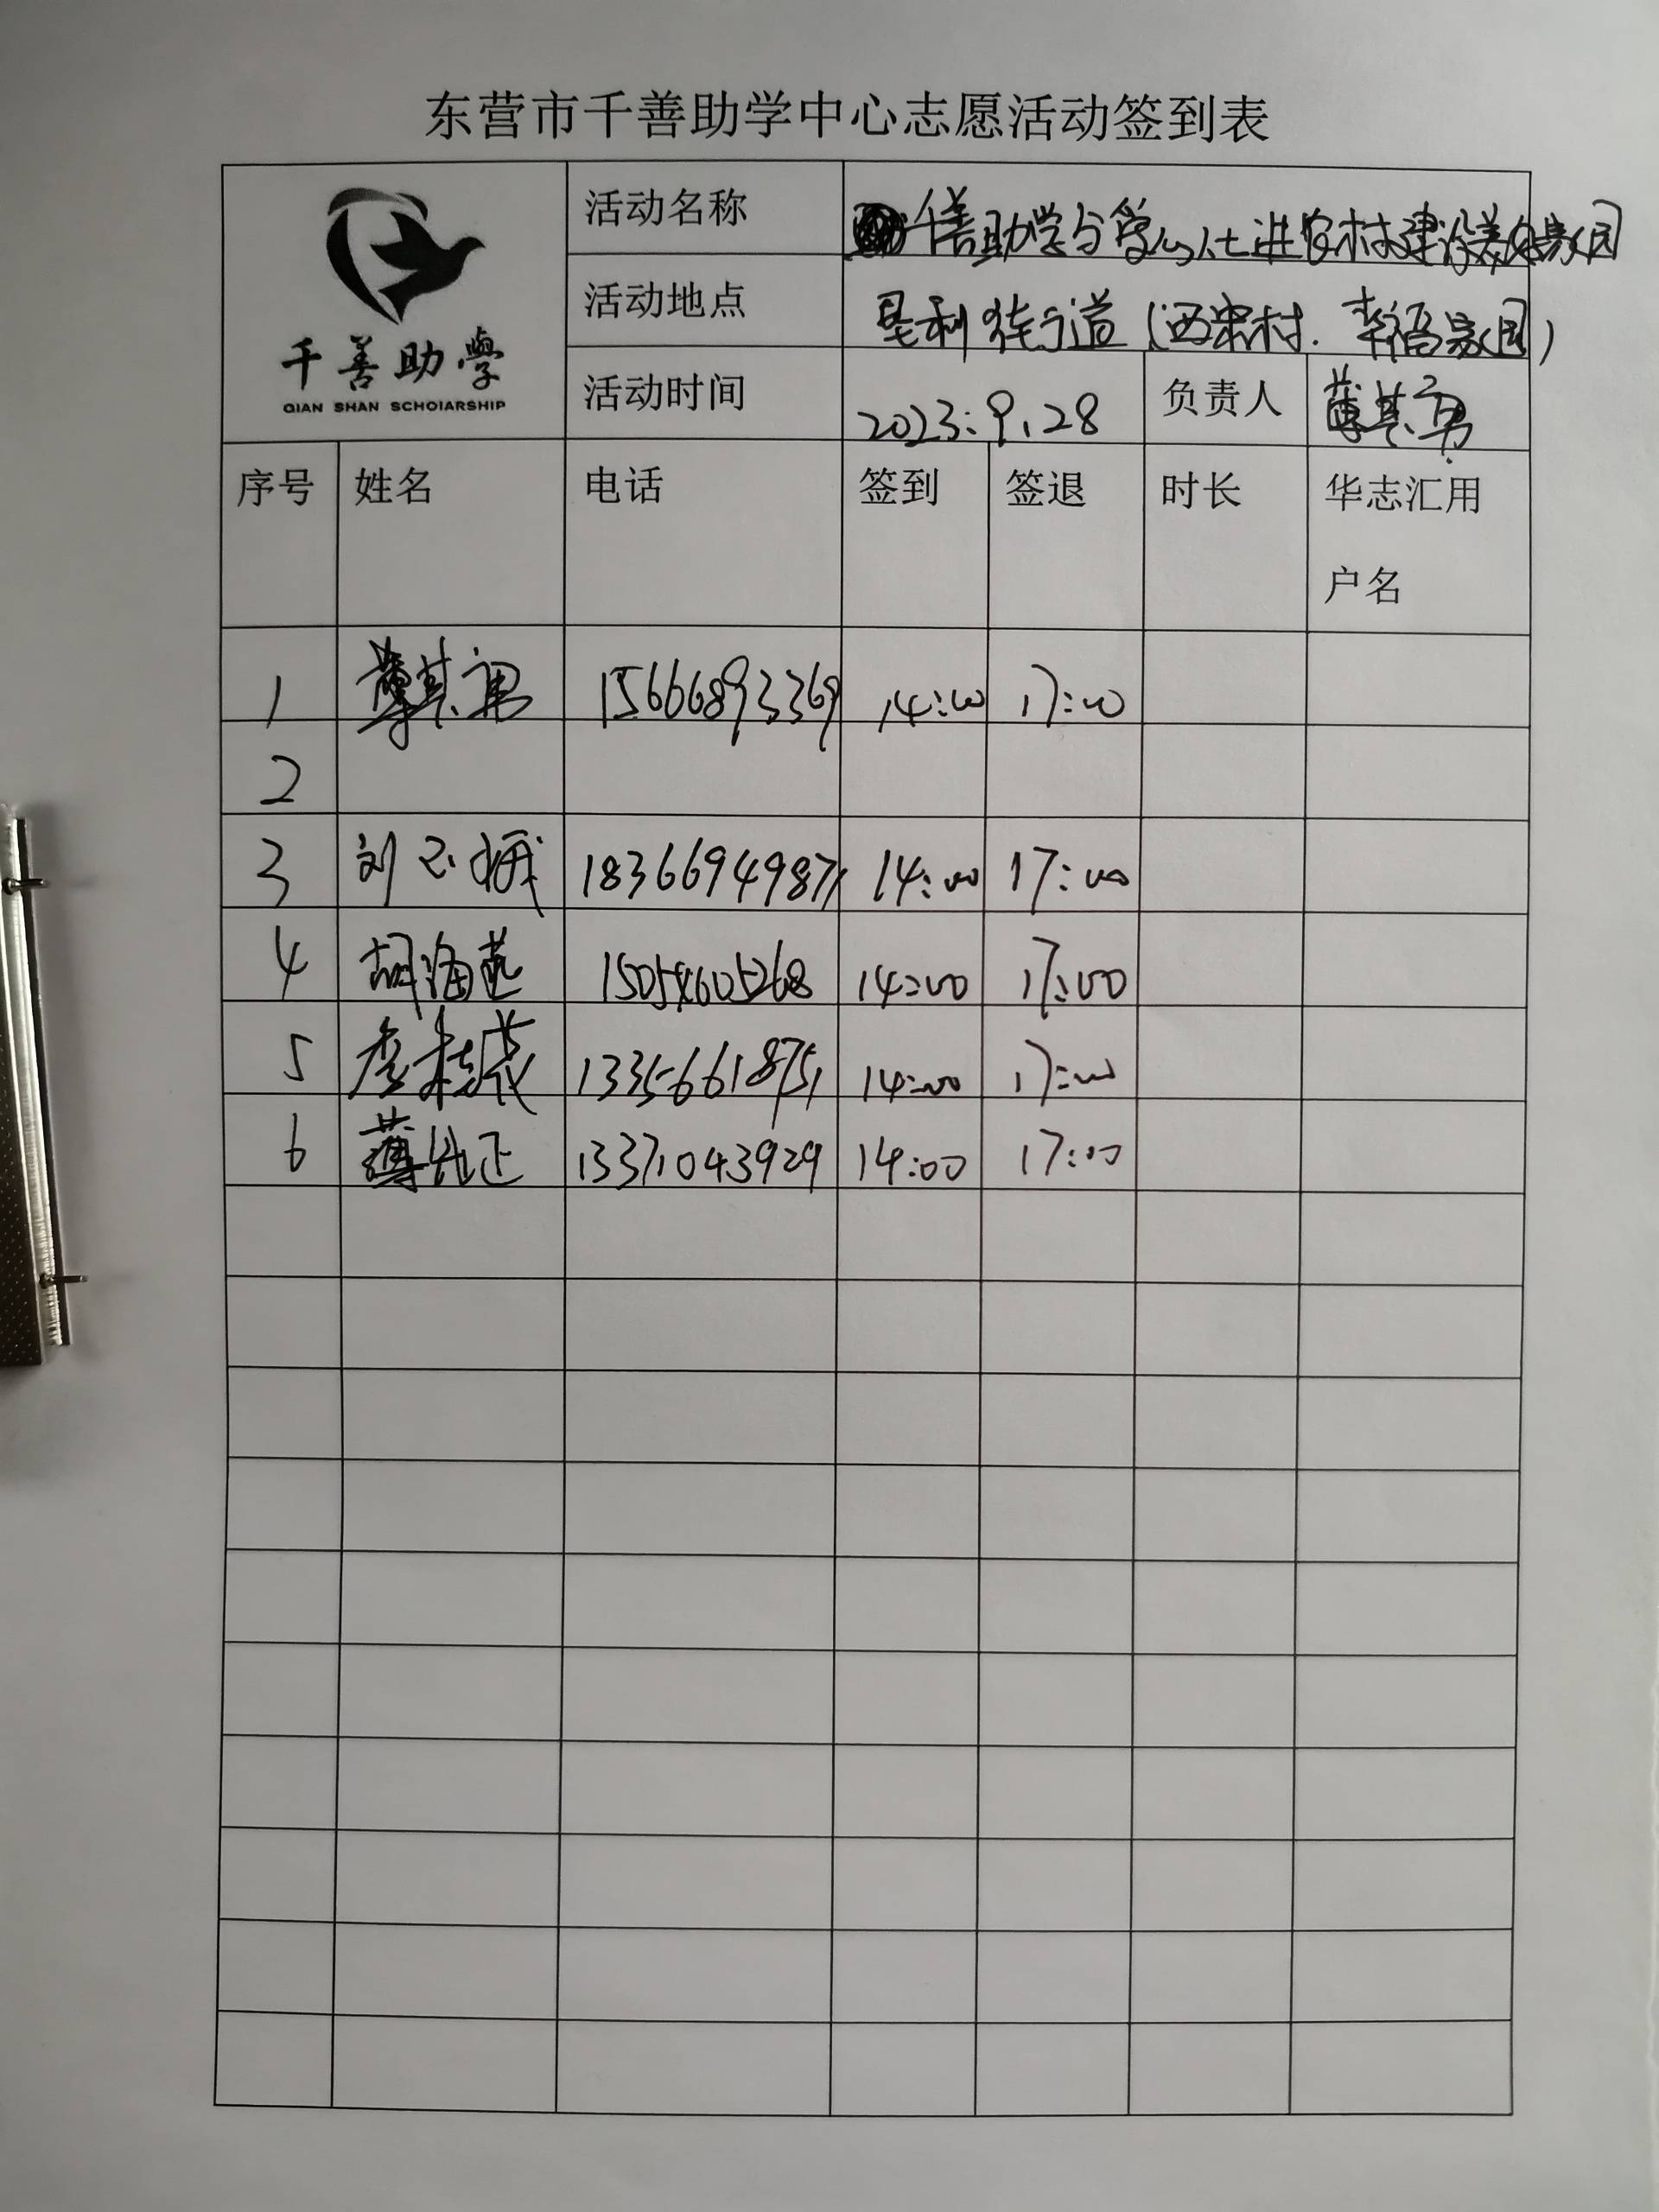 东营市千善助学中心志愿活动签到表
千善助學
QIAN SHAN SCHOlARSHIP
活动名称 千善助学 进农村建设美 家园
活动地点 垦利街道（西宋村．幸福家园）
活动时间 2023.9.28 负责人 薄其勇
序号 姓名 电话 签到 签退 时长 华志汇用
户名
1 薄其勇 15666893369 14:00 17:00
2
3 刘玉娥 1836694987 14:00 17:00
4 胡海燕 15054605268 14:00 17:00
5 李 茂 13356618751 14:00 17:00
6 薄 正 13371043929 14:00 17:00